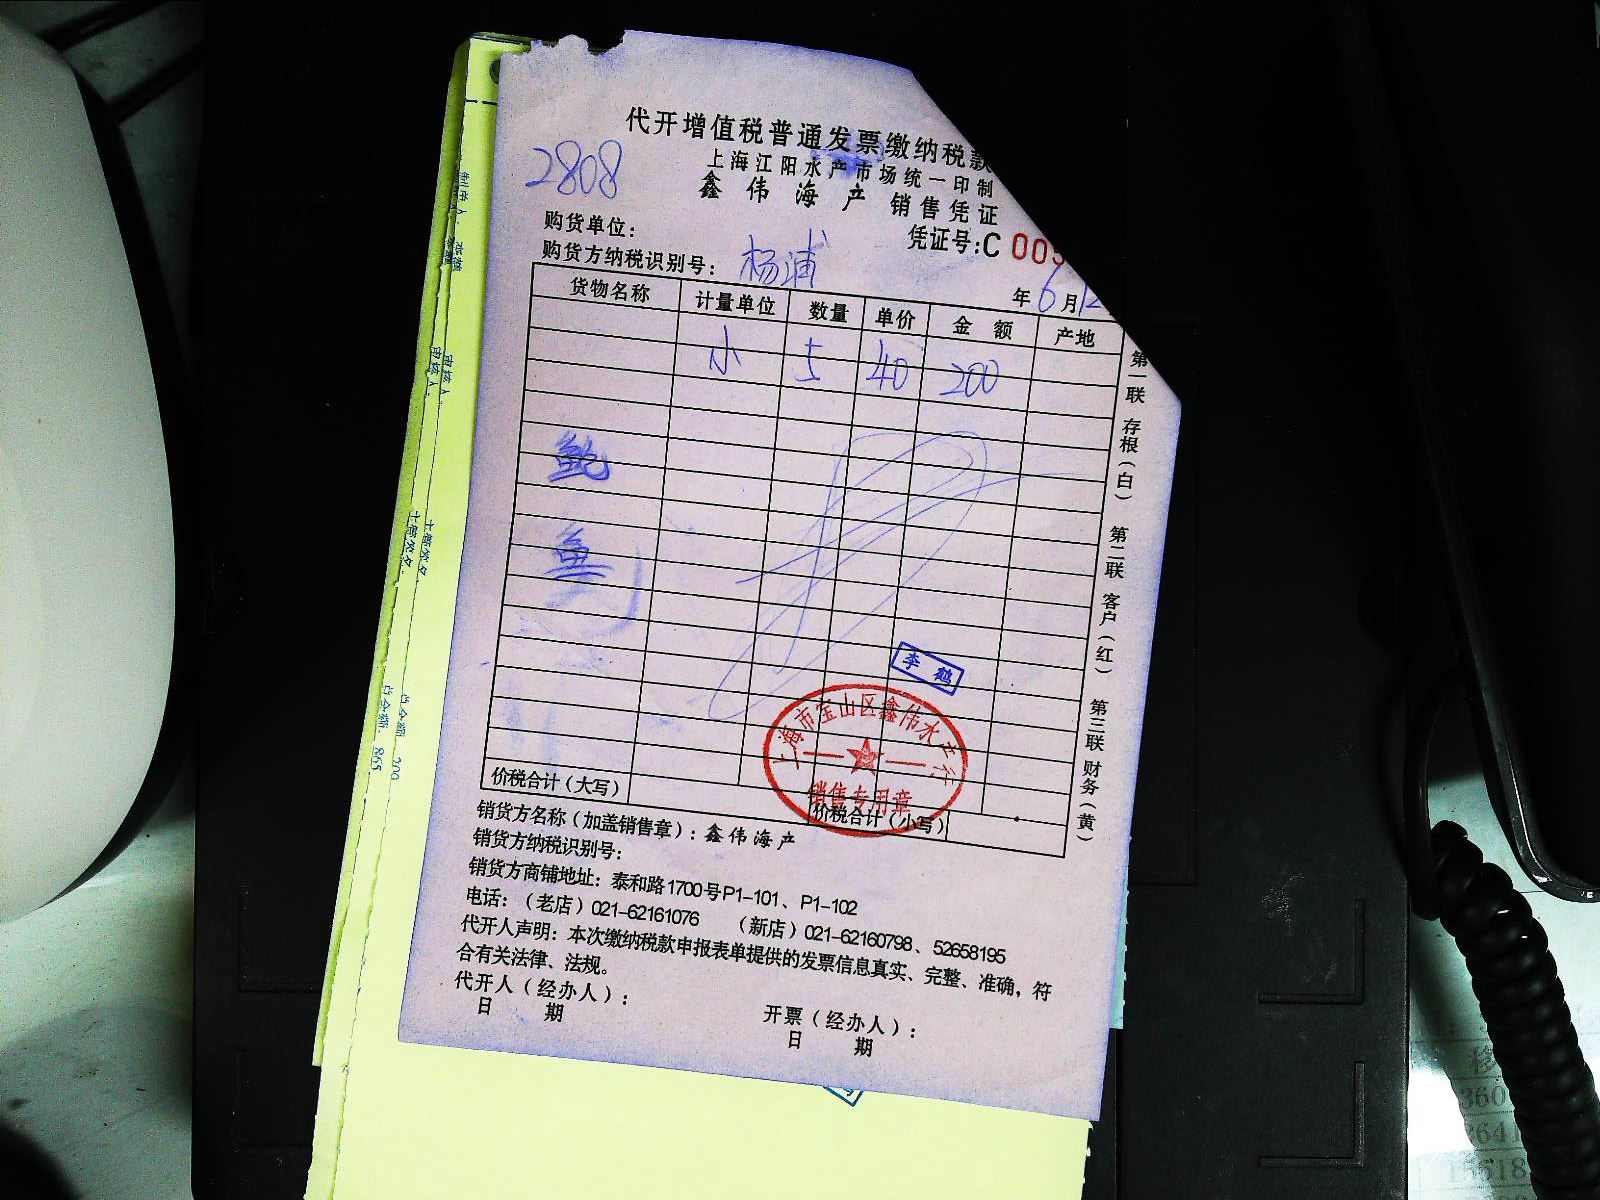 代开增值税普通发票缴纳税款
2808
上海江阳水产市场统一印制
鑫伟海产 销售凭证
购货单位：
凭证号：C 005
购货方纳税识别号：
杨浦
年 6 月 12
货物名称 计量单位 数量 单价 金额 产地
小 5 40 200
鲍
鱼
李鹤
上海市宝山区鑫伟水产行
销售专用章
价税合计（大写） 价税合计（小写）
第一联 存根（白） 第二联 客户（红） 第三联 财务（黄）
销货方名称（加盖销售章）：鑫伟海产
销货方纳税识别号：
销货方商铺地址：泰和路1700号P1-101、P1-102
电话：（老店）021-62161076 （新店）021-62160798、52658195
代开人声明：本次缴纳税款申报表单提供的发票信息真实、完整、准确，符
合有关法律、法规。
代开人（经办人）： 开票（经办人）：
日 期 日 期
审核人
审核人
总金额: 200
总金额: 865